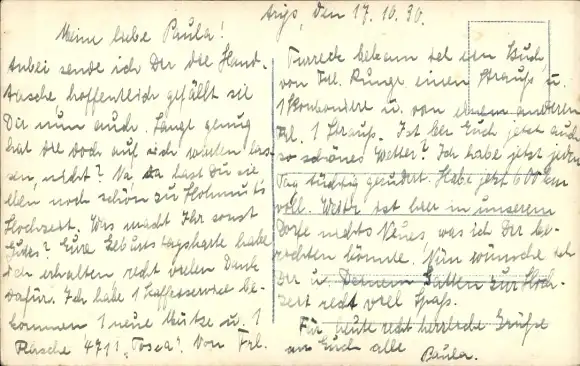 Arys, den 17.10.30.
Meine liebe Paula!
Anbei sende ich Dir die Hand-
tasche, hoffentlich gefällt sie
Dir nun auch. Lange genug
hat sie doch auf sich warten las-
sen, nicht? Na, da hast Du sie
eben noch schön zu Helmuts
Hochzeit. Was macht Ihr sonst
Gutes? Eure Geburtstagskarte habe
ich erhalten recht vielen Dank
dafür. Ich habe 1 Kaffeeservice be-
kommen 1 neue Mütze u. 1
Flasche 4711 „Tosca". Von Frl.
bekam ich ein Buch
von Frl. Runge einen Strauß u.
1 u. von einem anderen
Frl. 1 Strauß. Ist bei Euch jetzt auch
so schönes Wetter? Ich habe jetzt jeden
Tag tüchtig gerudert. Habe jetzt 600 km
voll. Weiter ist hier in unserem
Dorfe nichts Neues, was ich Dir be-
richten könnte. Nun wünsche ich
Dir u. Deinem Gatten zur Hoch-
zeit recht viel Spaß.
Für heute recht herzliche Grüße
an Euch alle
Paula.